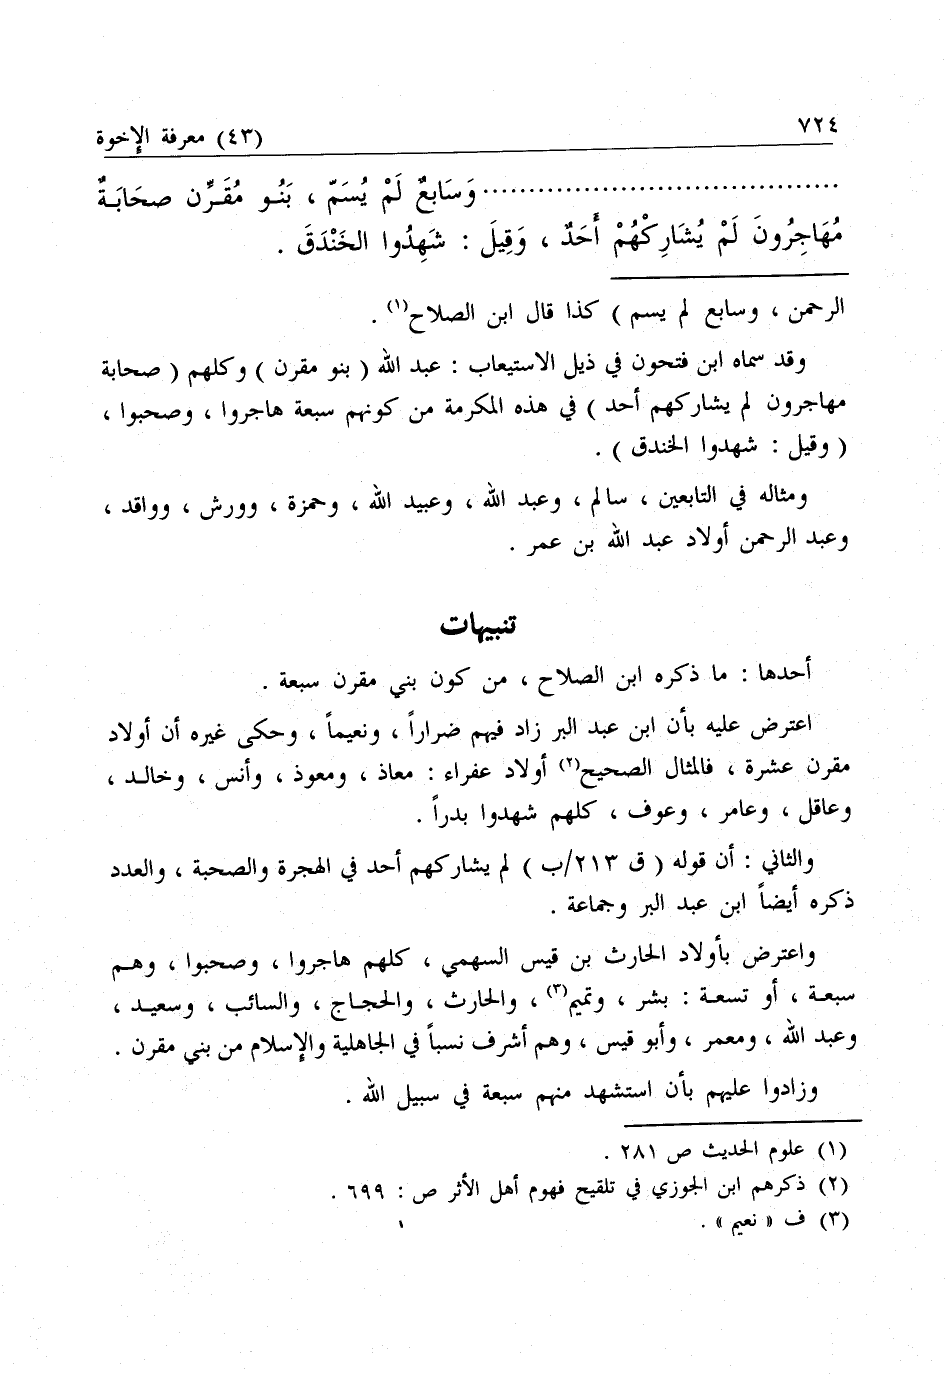 ٧٢٤
(٤٣) معرفة الإخوة
........................................ وَسَابِعٌ لَمْ يُسَمّ ، بَنُو مُقَرِّن صحَابَةٌ
مُهَاجِرُونَ لَمْ يُشَارِكْهُمْ أَحَدٌ ، وَقِيلَ : شَهِدُوا الخَنْدَقَ .
الرحمن ، وسابع لم يسم ) كذا قال ابن الصلاح(١) .
وقد سماه ابن فتحون في ذيل الاستيعاب : عبد الله ( بنو مقرن ) وكلهم ( صحابة
مهاجرون لم يشاركهم أحد ) في هذه المكرمة من كونهم سبعة هاجروا ، وصحبوا ،
( وقيل : شهدوا الخندق ) .
ومثاله في التابعين ، سالم ، وعبد الله ، وعبيد الله ، وحمزة ، وورش ، وواقد ،
وعبد الرحمن أولاد عبد الله بن عمر .
تنبيهات
أحدها : ما ذكره ابن الصلاح ، من كون بني مقرن سبعة .
اعترض عليه بأن ابن عبد البر زاد فيهم ضراراً ، ونعيماً ، وحكى غيره أن أولاد
مقرن عشرة ، فالمثال الصحيح(٢) أولاد عفراء : معاذ ، ومعوذ ، وأنس ، وخالد ،
وعاقل ، وعامر ، وعوف ، كلهم شهدوا بدراً .
والثاني : أن قوله ( ق ٢١٣/ب ) لم يشاركهم أحد في الهجرة والصحبة ، والعدد
ذكره أيضاً ابن عبد البر وجماعة .
واعترض بأولاد الحارث بن قيس السهمي ، كلهم هاجروا ، وصحبوا ، وهم
سبعة ، أو تسعة : بشر ، وتميم(٣) ، والحارث ، والحجاج ، والسائب ، وسعيد ،
وعبد الله ، ومعمر ، وأبو قيس ، وهم أشرف نسباً في الجاهلية والإسلام من بني مقرن .
وزادوا عليهم بأن استشهد منهم سبعة في سبيل الله .
(١) علوم الحديث ص ٢٨١ .
(٢) ذكرهم ابن الجوزي في تلقيح فهوم أهل الأثر ص : ٦٩٩ .
(٣) ف « نعيم » .